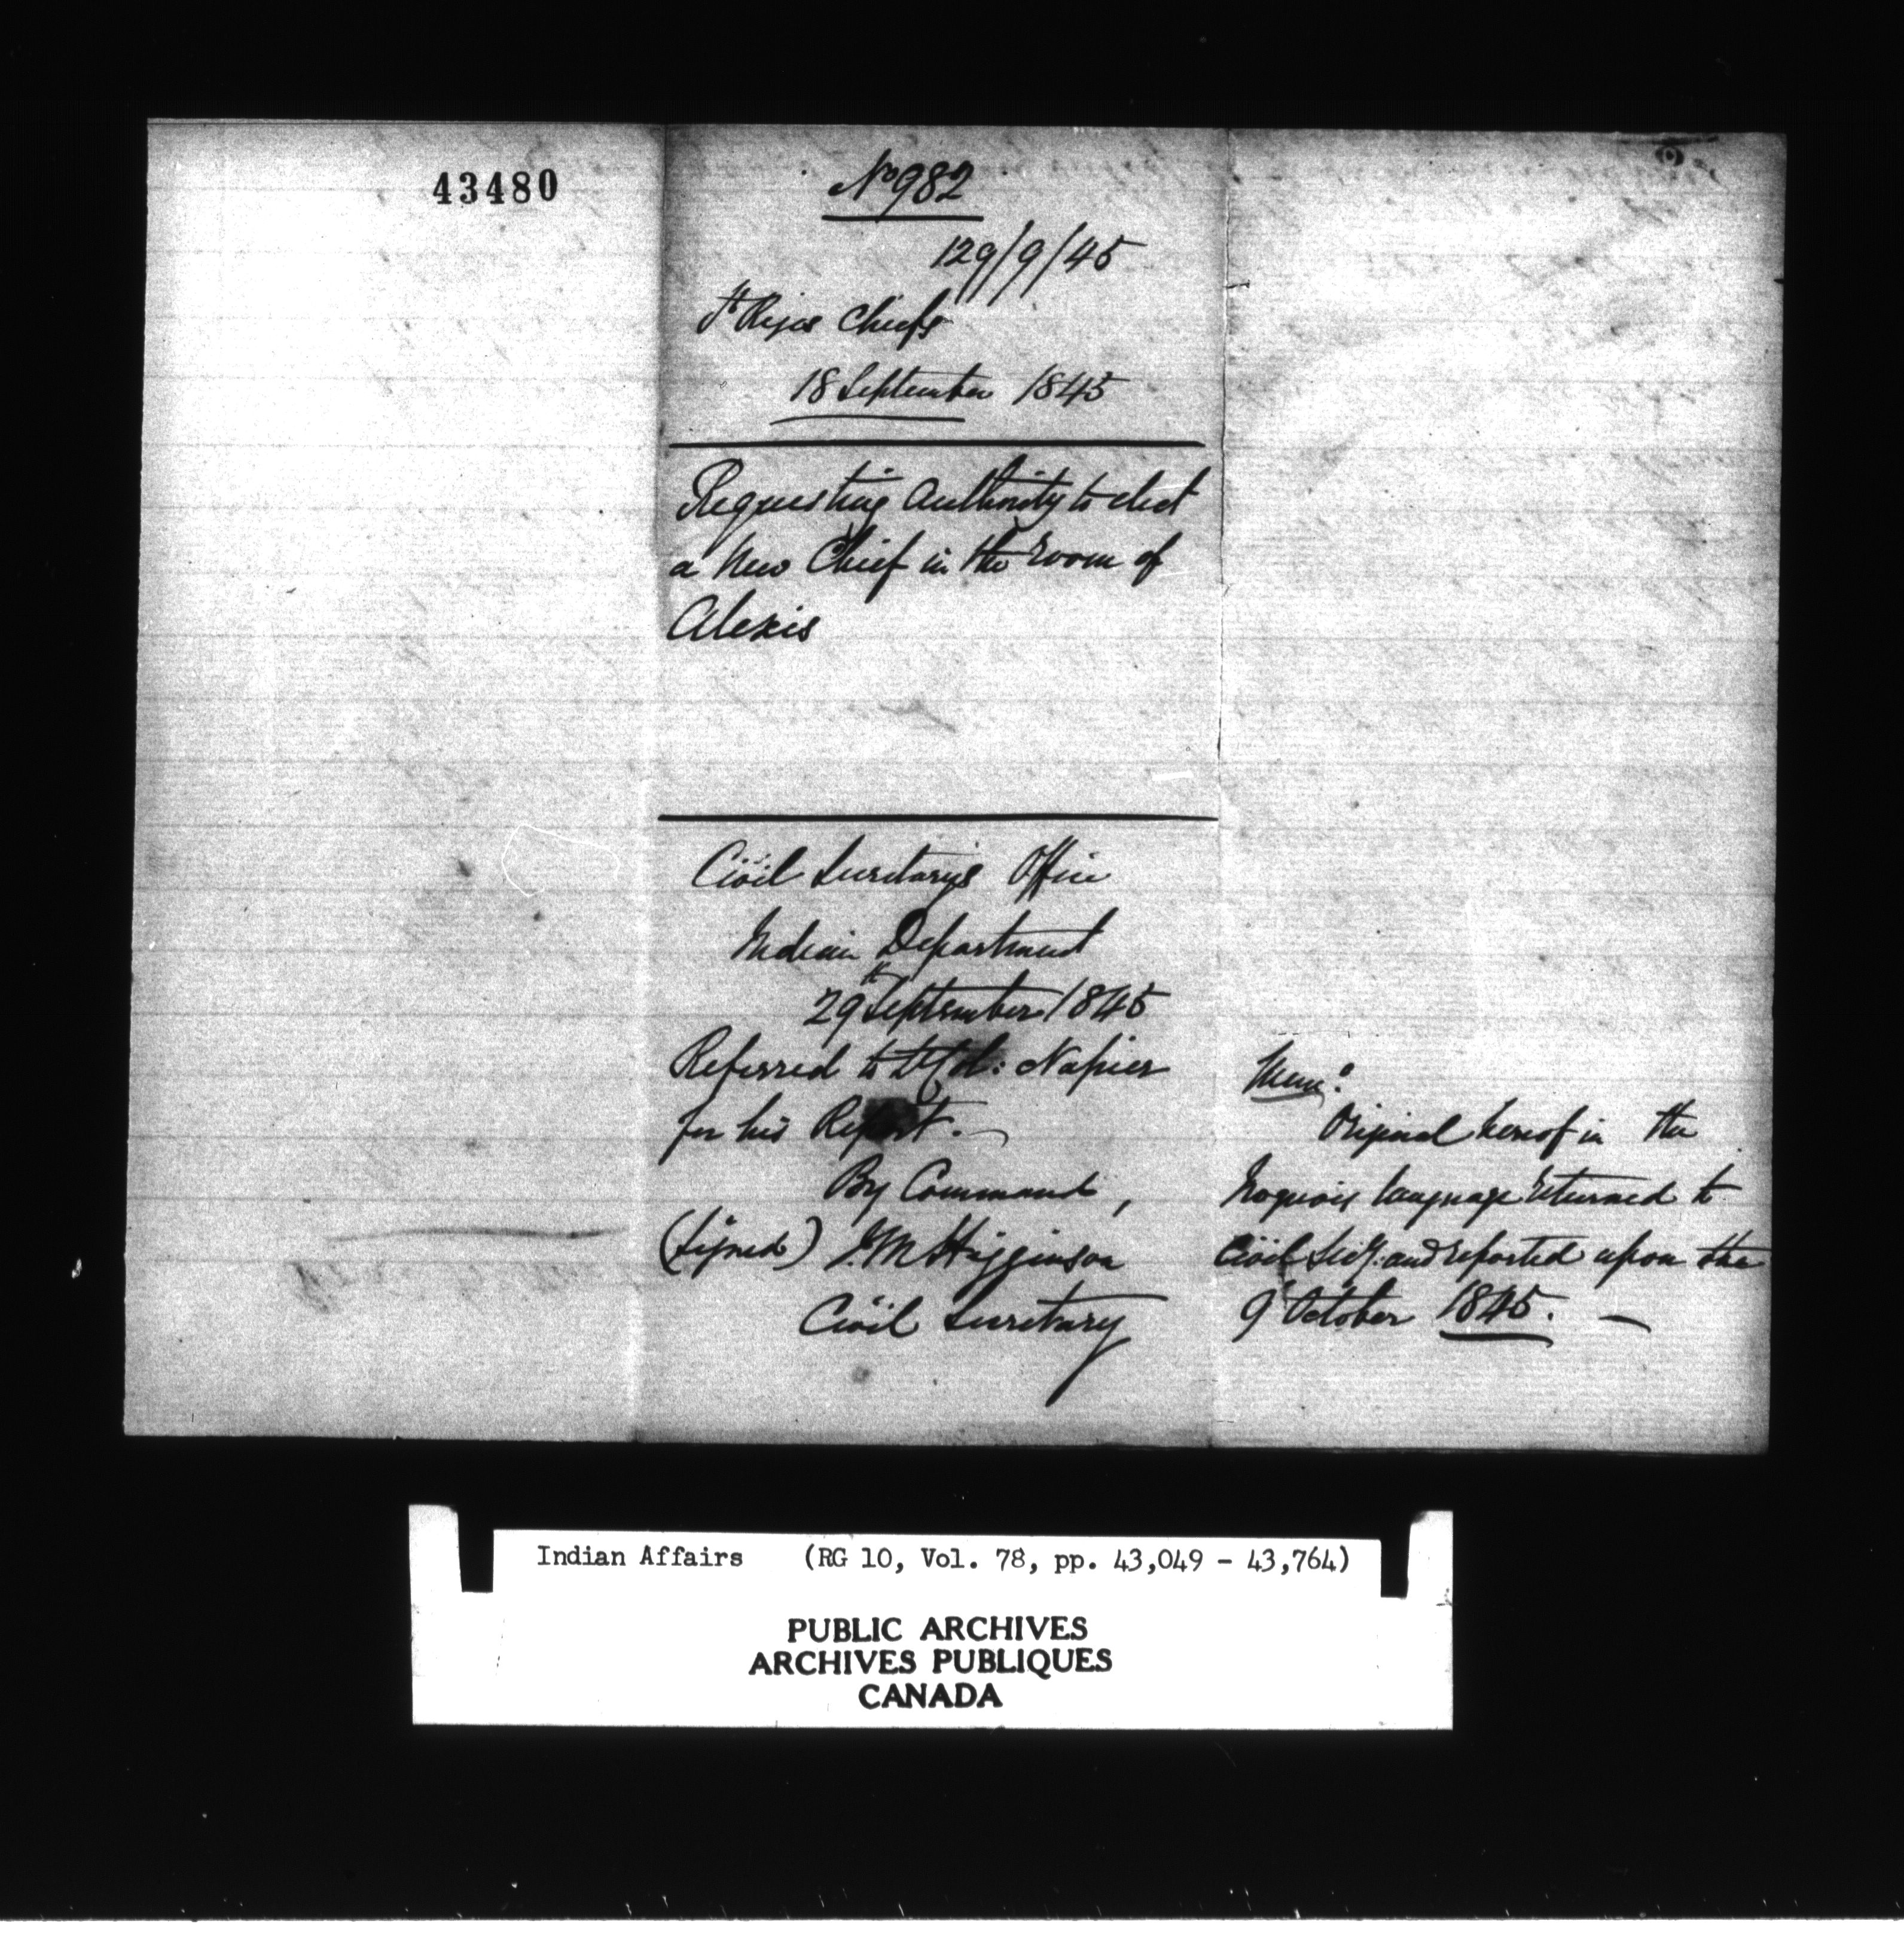 43480
No 982
129/9/45
St Regis Chiefs
18 September 1845
Requesting Authority to elect
a New Chief in the room of
Alexis
Civil Secretary's Office
Indian Department
29th September 1845
Referred to Lt Col: Napier
for his Report.
By Command,
(Signed) J.M Higginson
Civil Secretary
Memo:
Original hereof in the
Iroquois language returned to
Civil Secy: and reported upon the
9 October 1845.
Indian Affairs (RG 10, Vol. 78, pp. 43,049 - 43,764)
PUBLIC ARCHIVES
ARCHIVES PUBLIQUES
CANADA